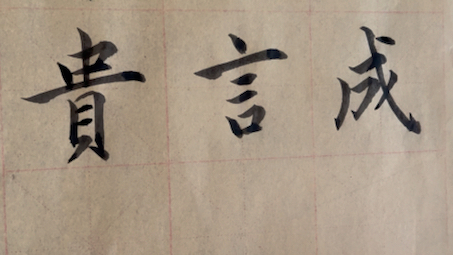 貴言成